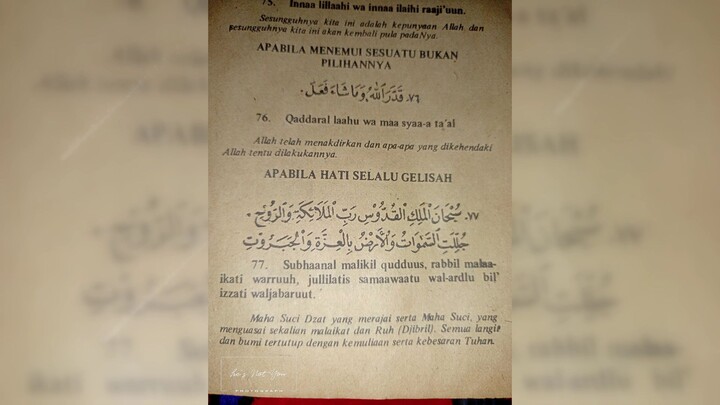 75. Innaa lillaahi wa innaa ilaihi raaji'uun.
Sesungguhnya kita ini adalah kepunyaan Allah, dan
sesungguhnya kita ini akan kembali pula padaNya.
APABILA MENEMUI SESUATU BUKAN
PILIHANNYA
٧٦. قَدَّرَ اللّٰهُ وَمَا شَاءَ فَعَلَ.
76. Qaddaral laahu wa maa syaa-a ta'al
Allah telah menakdirkan dan apa-apa yang dikehendaki
Allah tentu dilakukannya.
APABILA HATI SELALU GELISAH
٧٧. سُبْحَانَ الْمَلِكِ الْقُدُّوْسِ رَبِّ الْمَلَائِكَةِ وَالرُّوْحِ.
جُلِّلَتِ السَّمٰوَاتُ وَالْأَرْضُ بِالْعِزَّةِ وَالْجَبَرُوْتِ
77. Subhaanal malikil qudduus, rabbil malaa-
ikati warruuh, jullilatis samaawaatu wal-ardlu bil'
izzati waljabaruut.
Maha Suci Dzat yang merajai serta Maha Suci, yang
menguasai sekalian malaikat dan Ruh (Djibril). Semua langit
dan bumi tertutup dengan kemuliaan serta kebesaran Tuhan.
PHOTOGRAPH